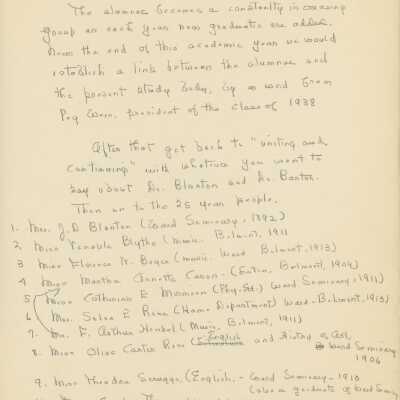 The alumnae becomes a constantly increasing
group as each year new graduates are added.
Near the end of this academic year we would
establish a link between the alumnae and
the present study body, by a word from
Peg Wern, president of the class of 1938
After that get back to "uniting and
continuing" with whatever you want to
say about Dr. Blanton and Dr. Barton.
Then on to the 25 year people.
1. Mrs. J. D. Blanton (Ward Seminary, 1892)
2 Miss Tenople Blythe (Music. Belmont, 1911
3 Miss Florence N. Boyce (Music. Ward. Belmont, 1913)
4 Miss Martha Annette Cason - (Latin, Belmont, 1904)
5 Miss Catharine E Morrison (Phy. Ed.) Ward Seminary, 1911)
6 Mrs. Selva E Rose (Home Department) Ward-Belmont, 1913)
7. Mr. F. Arthur Henkel (Music, Belmont, 1911)
8. Miss Olive Carter Ross (English and History of Art,
Ward Seminary
1906
9. Miss Theodora Scruggs (English, - Ward Seminary - 1910
(also a graduate of Ward Sem